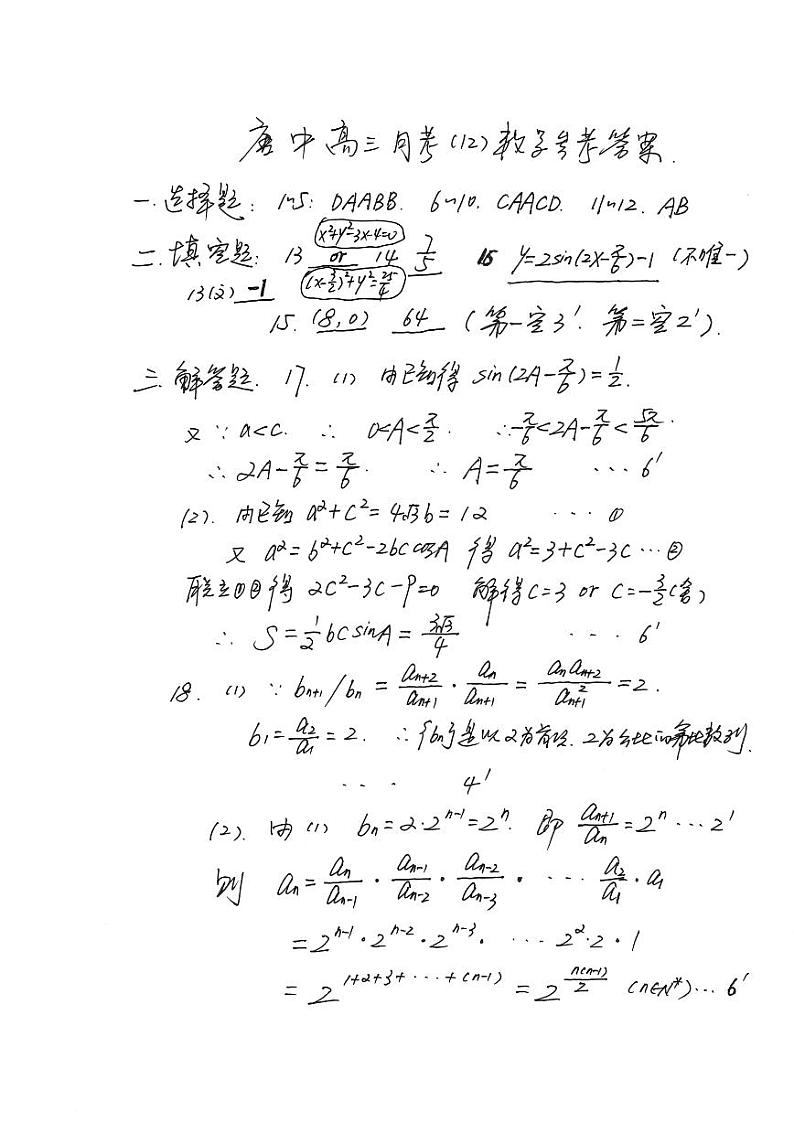 唐中高三月考(12)数学参考答案.
一.选择题: 1~5: DAABB. 6~10. CAACD. 11~12. AB
二.填空题: 13 x²+y²-3x-4=0 or (x-3/2)²+y²=25/4 14 7/5 15 y=2sin(2x-π/6)-1 (不唯一)
13(文) -1
15. (8,0) 64 (第一空3′. 第二空2′).
三.解答题. 17. (1) 由已知得 sin(2A-π/6)=1/2.
又∵a<c. ∴ 0<A<π/2. ∴-π/6<2A-π/6<5π/6.
∴2A-π/6=π/6. ∴ A=π/6 ··· 6′
(2). 由已知 a²+c²=4√3b=12 ··· ①
又 a²=b²+c²-2bc cosA 得 a²=3+c²-3c ··· ②
联立①②得 2c²-3c-9=0 解得c=3 or c=-3/2(舍)
∴ S=1/2bcsinA=3√3/4 ··· 6′
18. (1) ∵ bn+1/bn = an+2/an+1 · an/an+1 = anan+2/an+1² =2.
b1=a2/a1=2. ∴{bn}是以2为首项. 2为公比的等比数列.
··· 4′
(2). 由(1) bn=2·2ⁿ⁻¹=2ⁿ. 即 an+1/an=2ⁿ ··· 2′
则 an=an/an-1 · an-1/an-2 · an-2/an-3 · ··· a2/a1 · a1
=2ⁿ⁻¹·2ⁿ⁻²·2ⁿ⁻³· ··· 2²·2·1
= 2^(1+2+3+···+(n-1)) = 2^(n(n-1)/2) (n∈N*)··· 6′